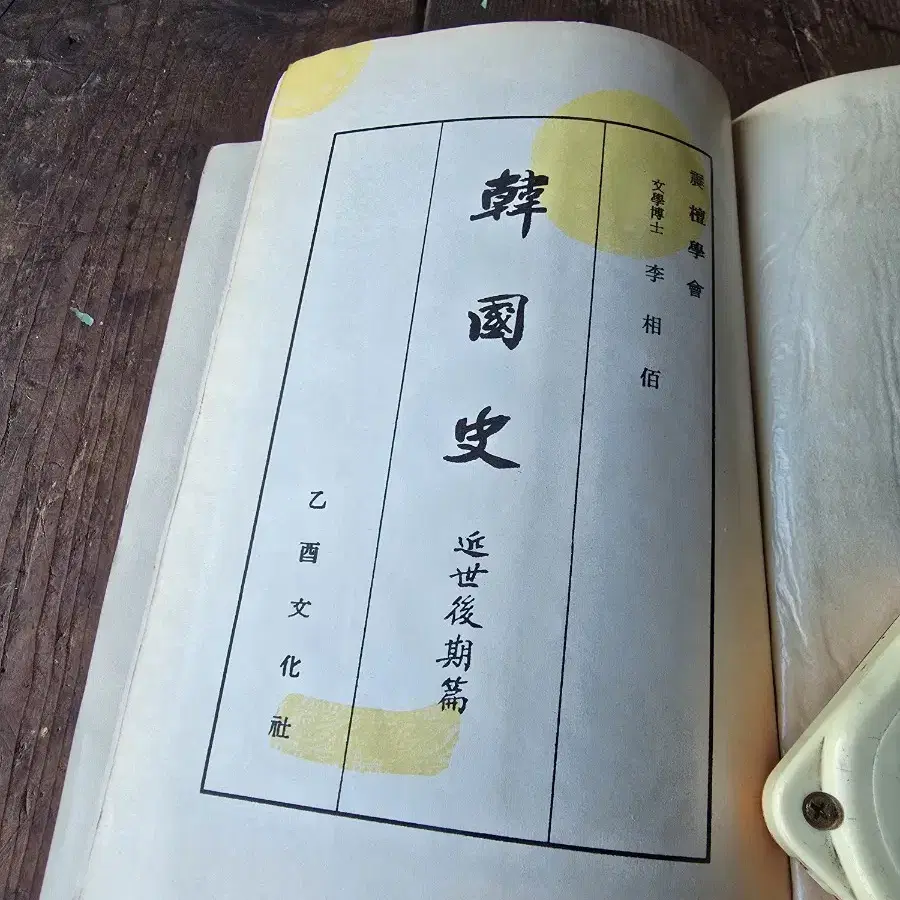 震檀學會
文學博士 李相佰
韓國史
近世後期篇
乙酉文化社